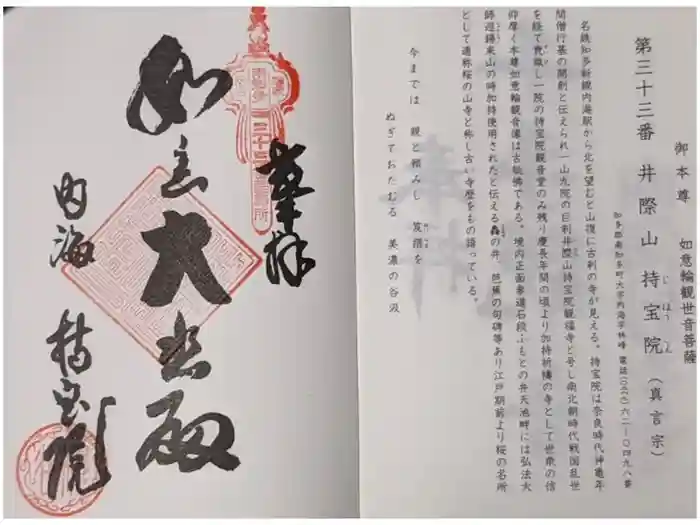 御本尊 如意輪観世音菩薩
第三十三番 井際山 持宝院(真言宗)
じほういん
知多郡南知多町大字内海字林之峰 電話(〇五六九)六二―〇四九八番
名鉄知多新線内海駅から北を望むと山腹に古刹の寺が見える。持宝院は奈良時代神亀年
間僧行基の開創と伝えられ一山九院の巨刹井際山持宝院観福寺と号し南北朝時代戦国乱世
を経て衰微し一院の持宝院観音堂のみ残り慶長年間の頃より加持祈禱の寺として世衆の信
仰厚く本尊如意輪観音像は古秘佛である。境内正面参道石段ふもとの弁天池畔には弘法大
師巡錫来山の時加持使用されたと伝える の井、芭蕉の句碑等あり江戸期前より桜の名所
として通称桜の山寺と称し古い寺歴をもの語っている。
今までは 親と頼みし 笈摺を
ぬぎておさむる 美濃の谷汲
奉拝
如意大悲殿
内海 持宝院